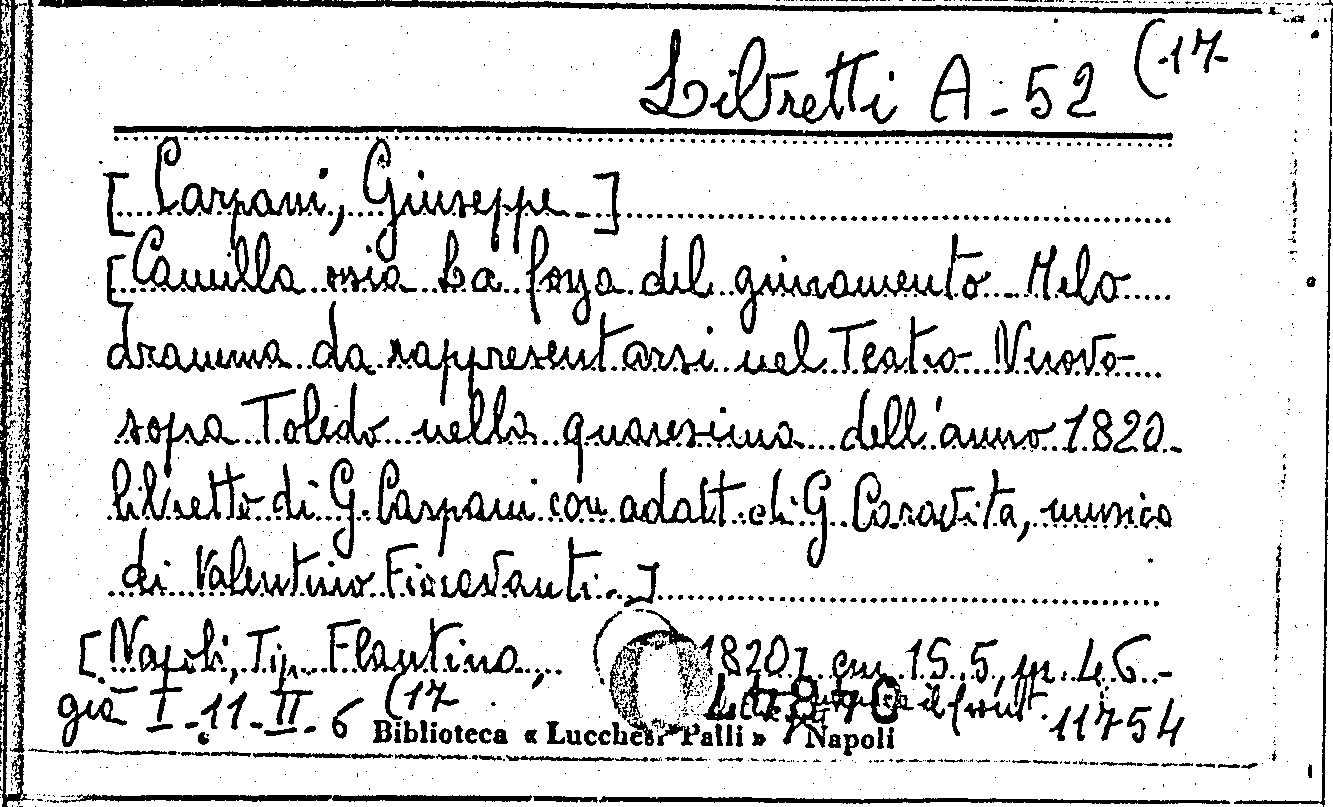 Libretti A-52 (17-
[Carpani, Giuseppe-]
[Camilla ossia La forza del giuramento. Melo
dramma da rappresentarsi nel Teatro Nuovo
sopra Toledo nella quaresima dell'anno 1820-
libretto di G. Carpani con adatt. di G. Caravita, musica
di Valentino Fioravanti.-]
[Napoli, Tip. Flautina, 1820] cm 15.5, pp. 46-
già I-11-II-6 (17 il front. 11754
Biblioteca « Lucchesi Palli » Napoli